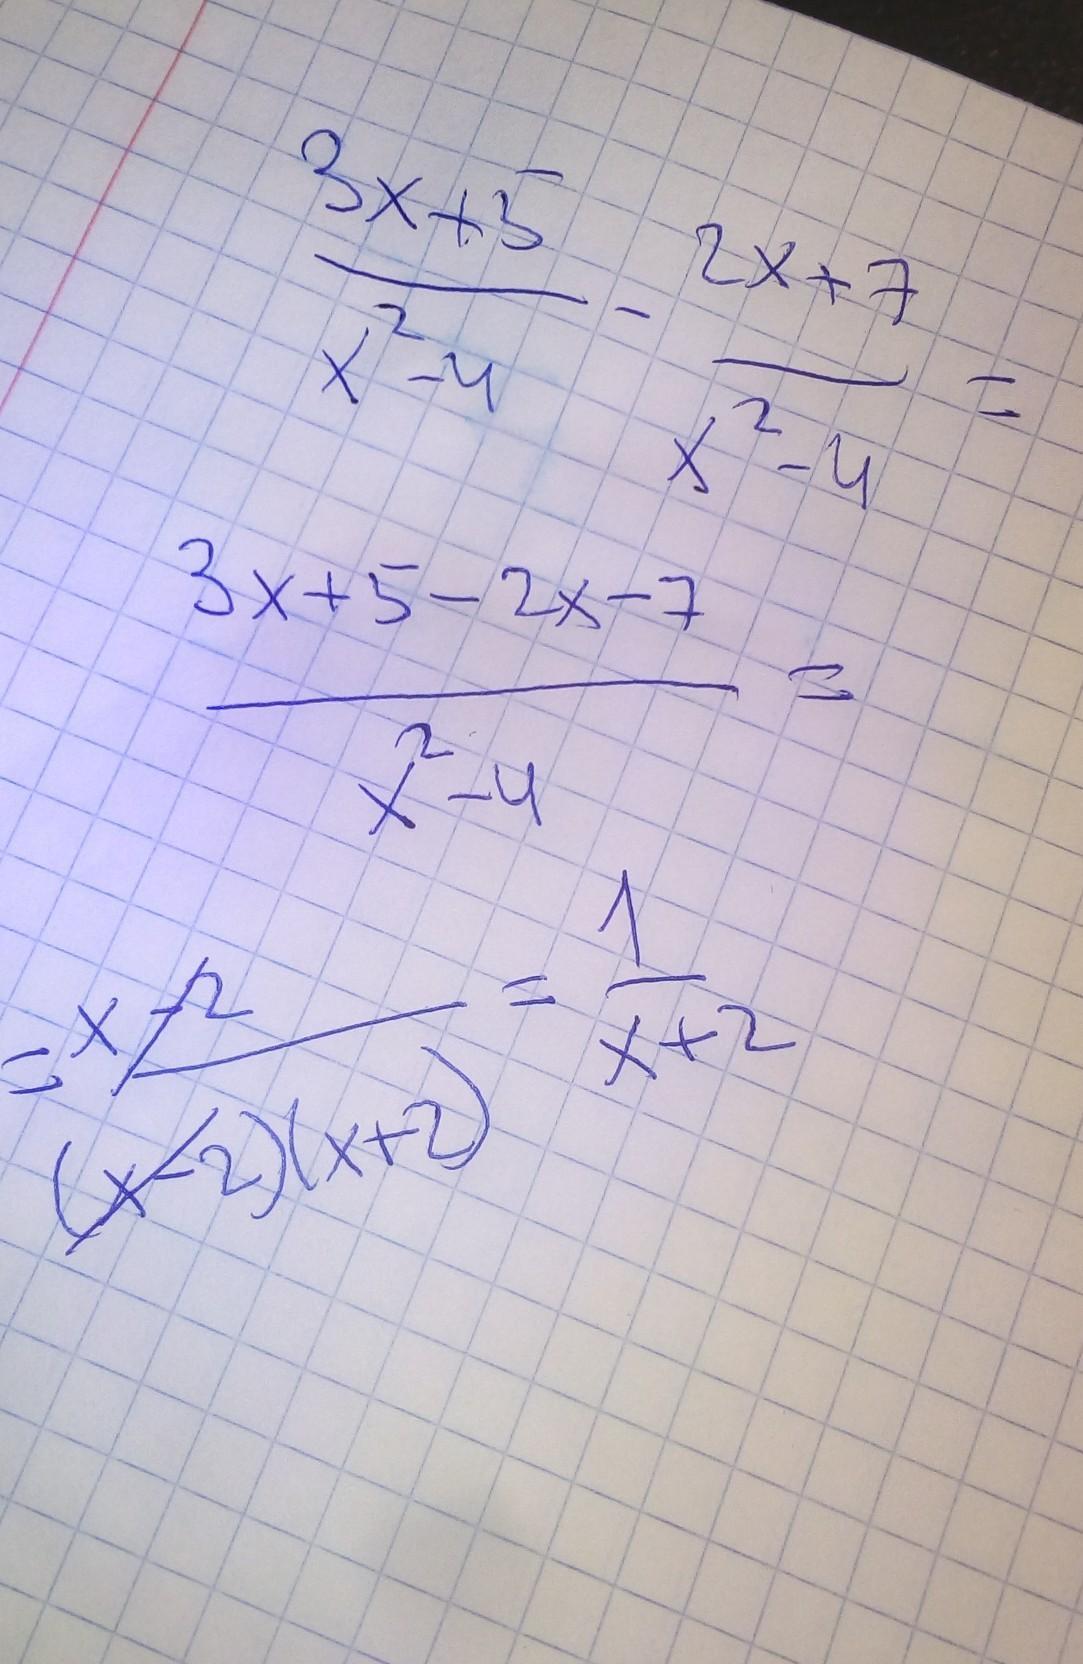 (3x+5)/(x²-4) - (2x+7)/(x²-4) =
(3x+5-2x-7)/(x²-4) =
= (x-2)/((x-2)(x+2)) = 1/(x+2)